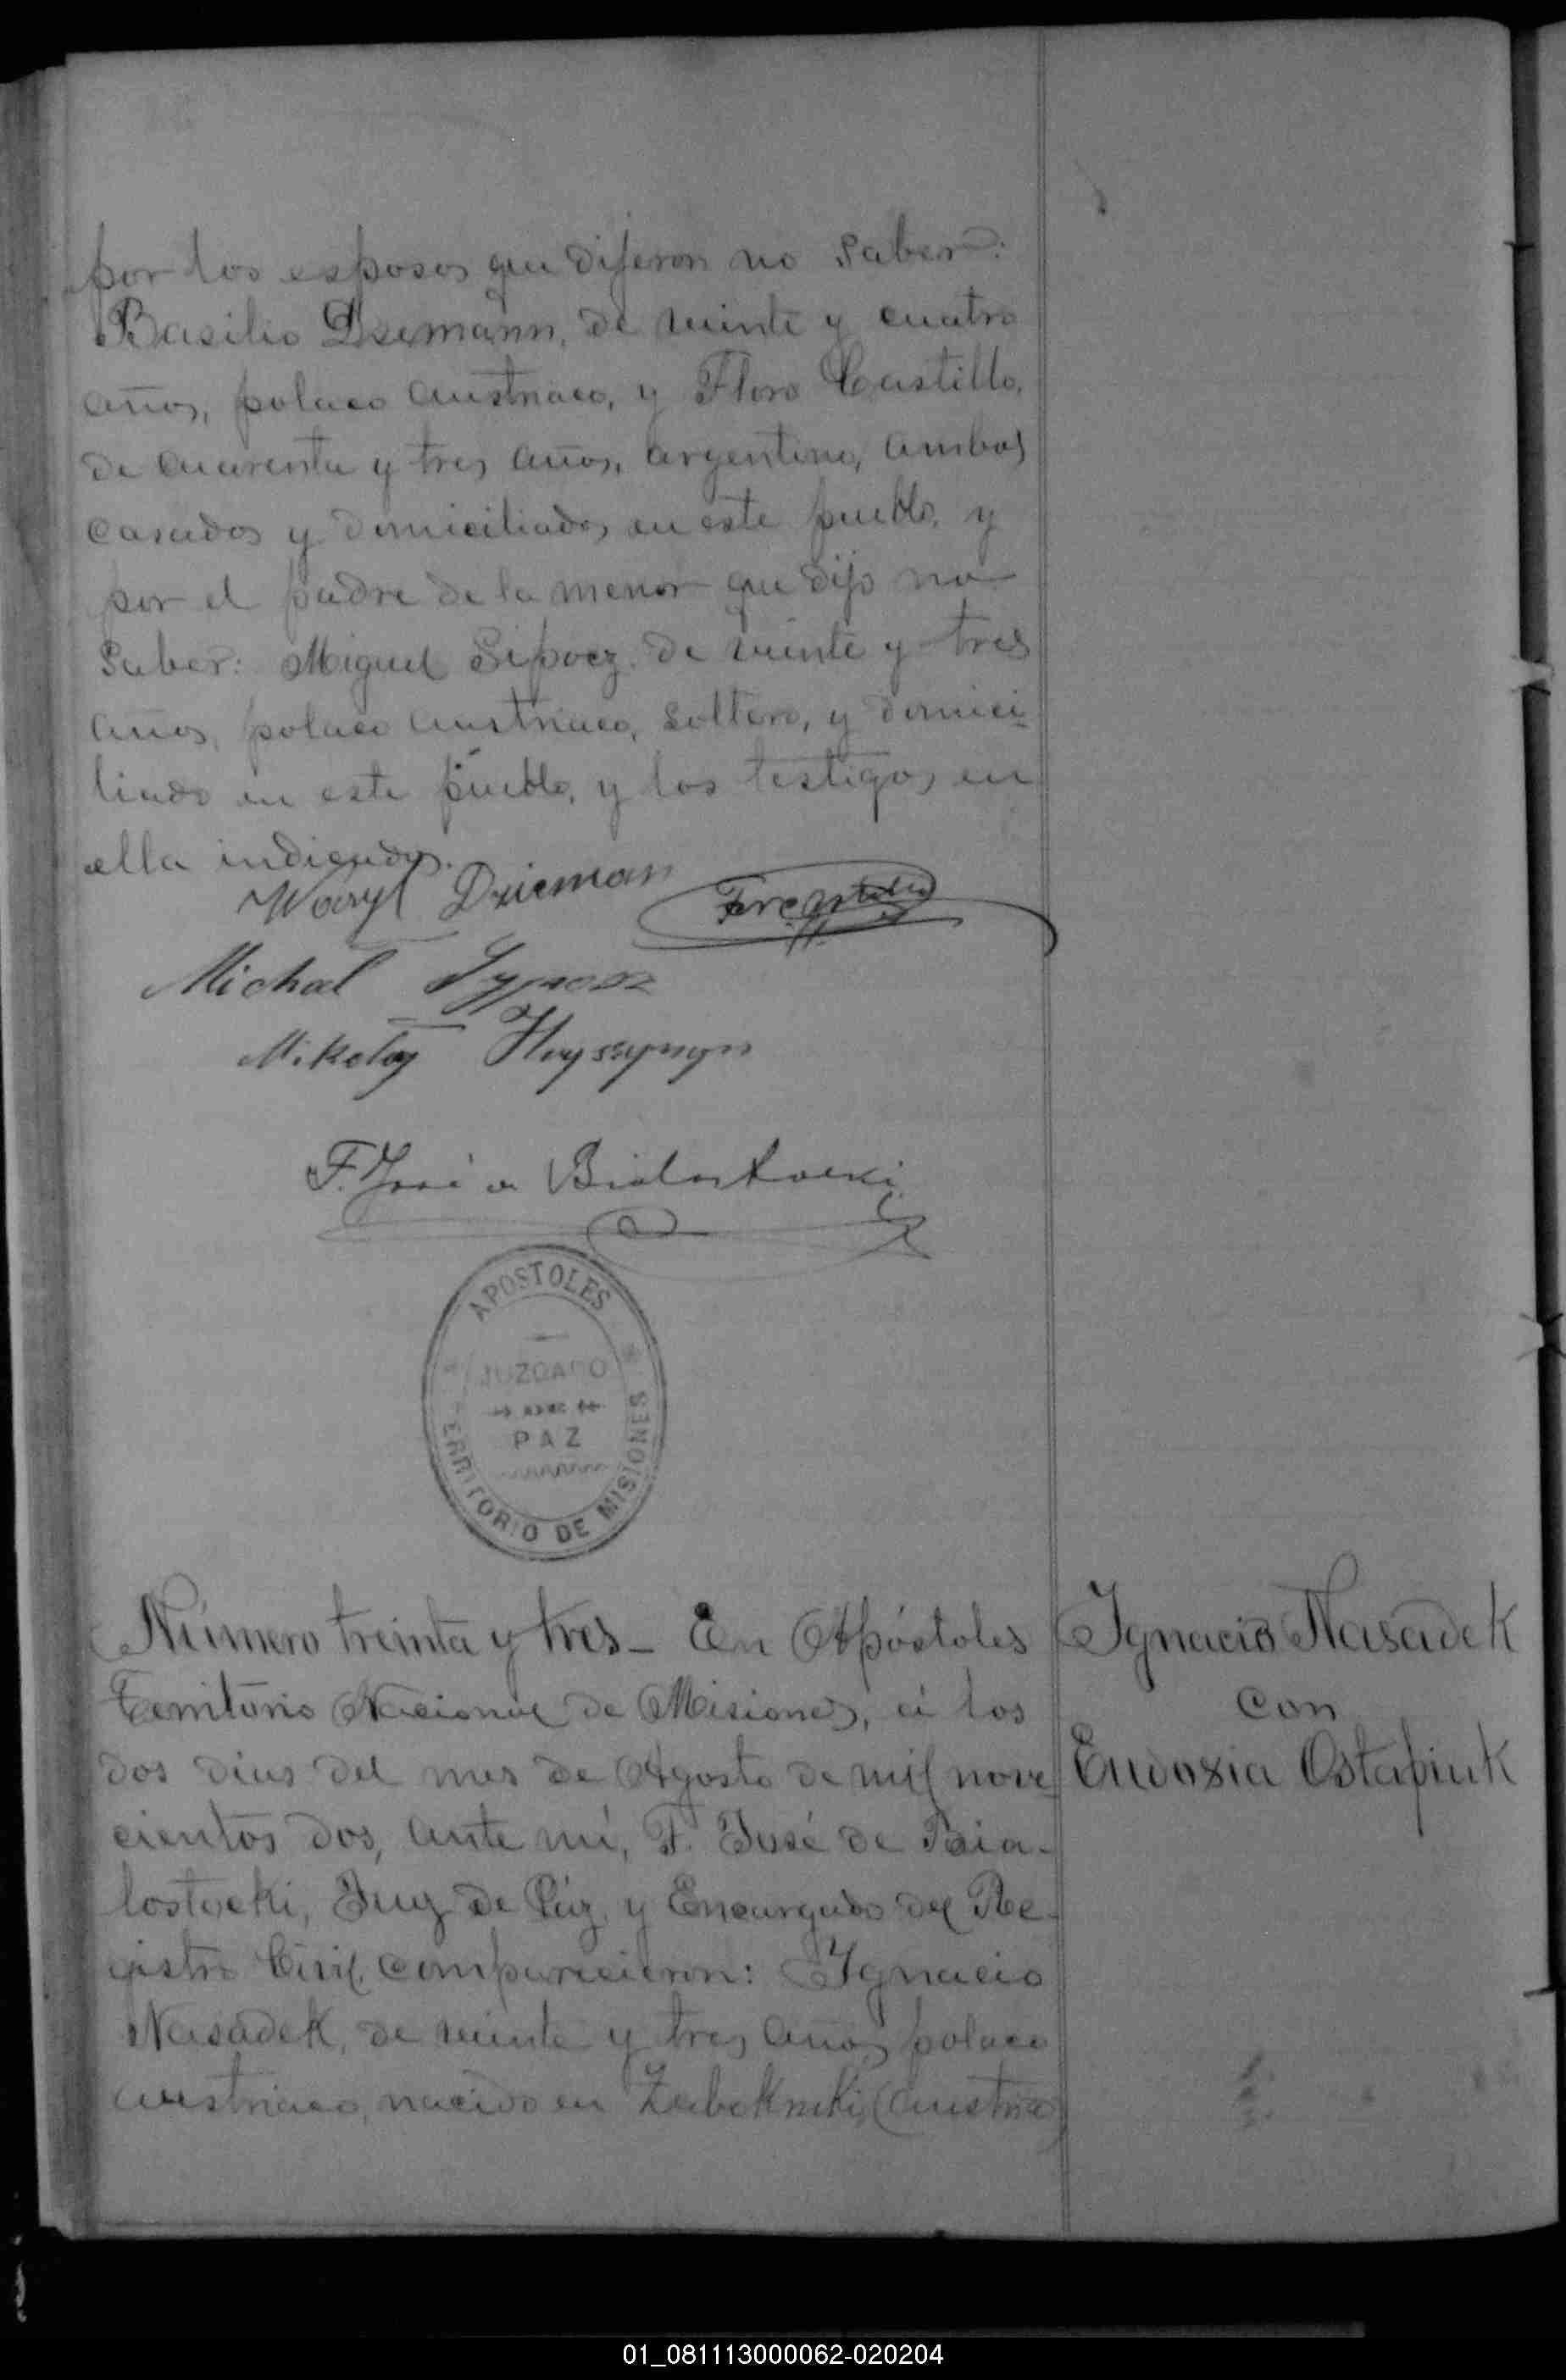 por los esposos que dijeron no saber:
Basilio Dziemann, de veinte y cuatro
años, polaco austriaco, y Floro Castillo,
de cuarenta y tres años, argentino, ambos
casados y domiciliados en este pueblo, y
por el padre de la menor que dijo no
saber: Miguel Sipocz, de veinte y tres
años, polaco austriaco, soltero, y domici-
liado en este pueblo, y los testigos en
ella indicados.
Wasyl Dzieman
Michał
Mikołaj
F. José de Bialostocki
APOSTOLES
JUZGADO
PAZ
TERRITORIO DE MISIONES
Número treinta y tres_ En Apóstoles
Territorio Nacional de Misiones, á los
dos dias del mes de Agosto de mil nove-
cientos dos, ante mí, F. José de Bia-
lostocki, Juez de Páz, y Encargado del Re-
gistro Civil, comparecieron: Ignacio
Nasadek, de veinte y tres años, polaco
austriaco, nacido en (Austria)
Ignacio Nasadek
con
Eudoxia Ostapiuk
01_081113000062-020204